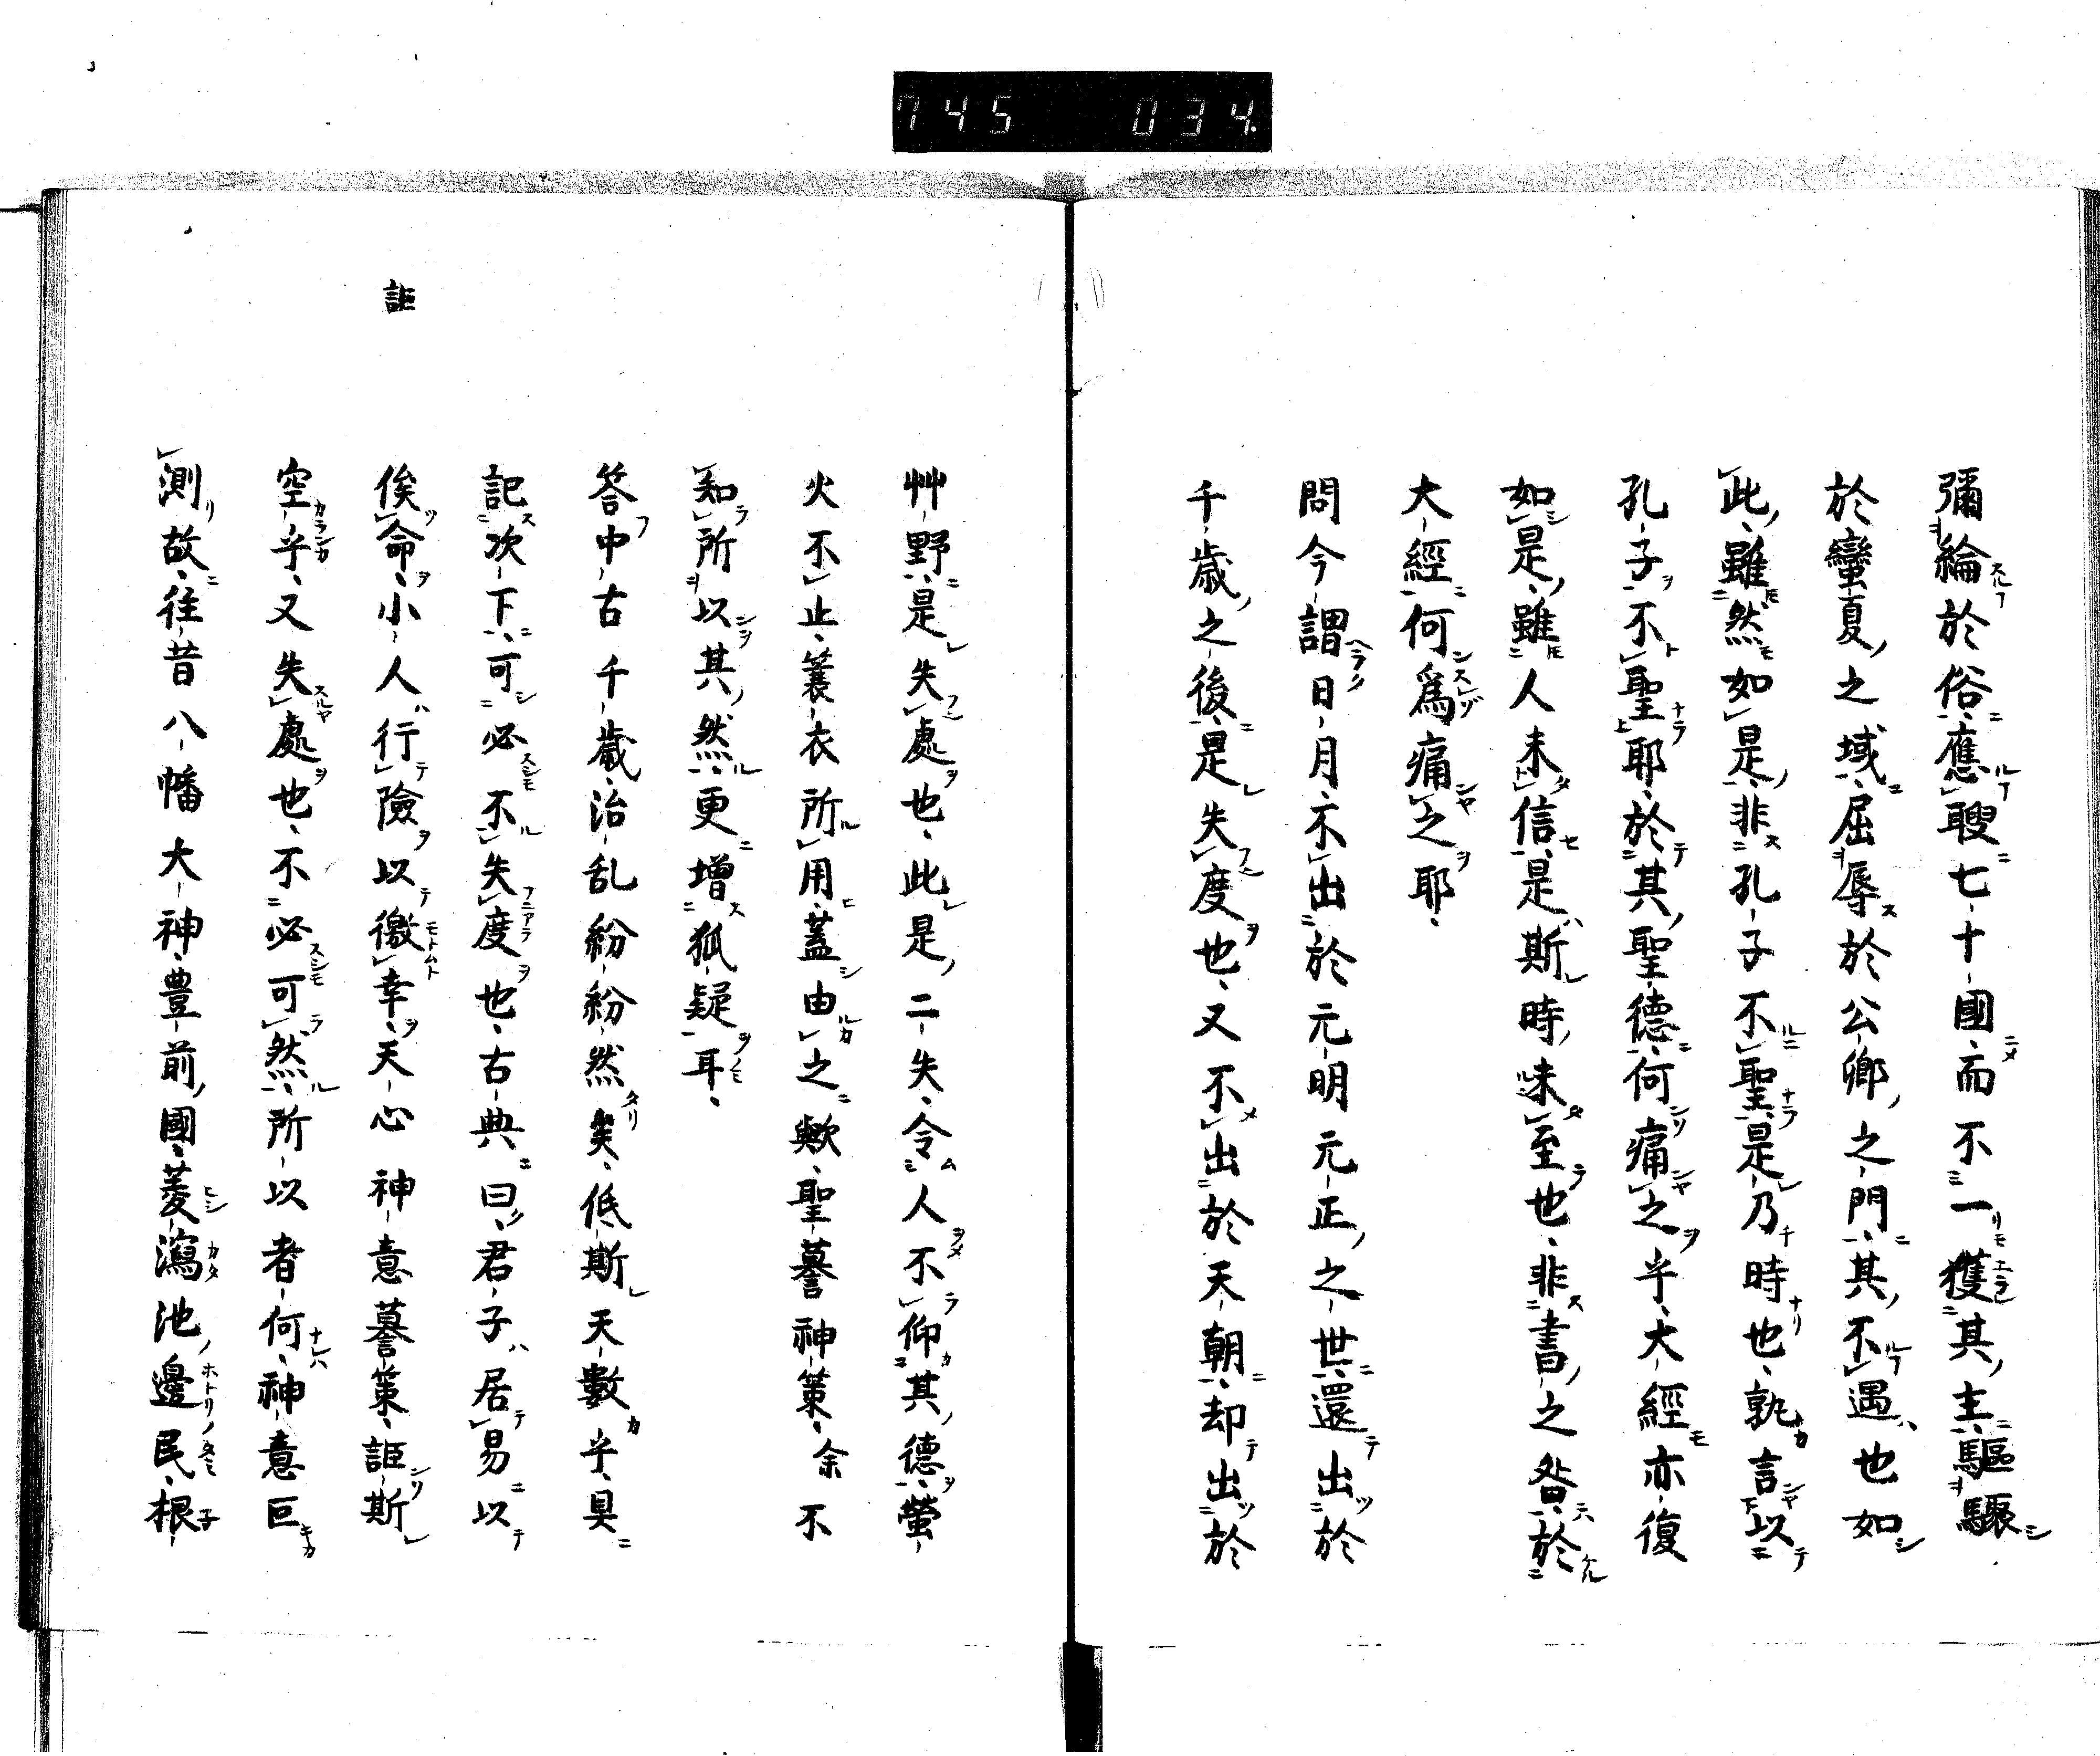 745 034.
彌綸於俗應聘七十國而不一獲其主驅驟
於蠻夏之域屈辱於公卿之門其不遇也如
此雖然如是非孔子不聖是乃時也孰言以
孔子不聖耶於其聖德何痛之乎大經亦復
如是雖人未信是斯時未至也非書之咎於
大經何爲痛之耶
問今謂日月不出於元明元正之世還出於
千歳之後是失度也又不出於天朝却出於
艸野是失處也此是二失令人不仰其德螢
火不止蓑衣所用蓋由之歟聖謩神策余不
知所以其然更增狐疑耳
答中古千歳治乱紛紛然矣低斯天數乎具
記次下可必不失度也古典曰君子居易以
俟命小人行險以徼幸天心神意謩策詎斯
詎
空乎又失處也不必可然所以者何神意叵
測故往昔八幡大神豊前國菱瀉池邊民根